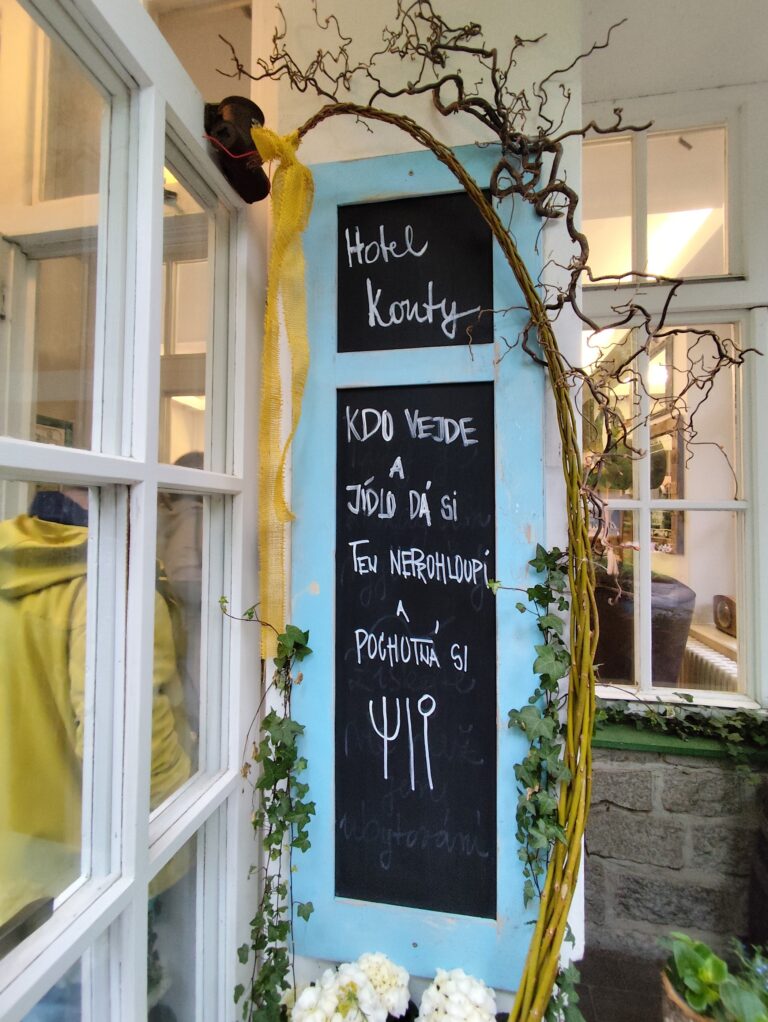 Hotel
Kouty
KDO VEJDE
A
JÍDLO DÁ SI
TEN NEPROHLOUPÍ
A
POCHUTNÁ SI
ubytování